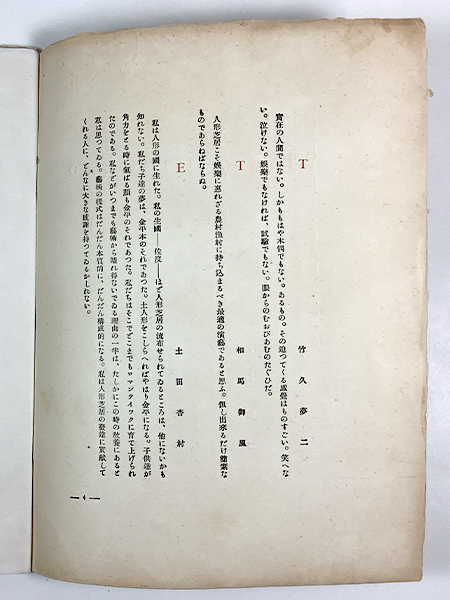 T
竹久夢二
實在の人間ではない。しかももはや木偶でもない。あるもの。その迫つてくる感覺はものすごい。笑へな
い。泣けない。娯樂でもなければ、試驗でもない。眼からのむおびあむのたぐひだ。
T
相馬御風
人形芝居こそ娯樂に惠れざる農村漁村に持ち込まるべき最適の演藝であると思ふ。但し出來るだけ簡素な
ものであらねばならぬ。
E
土田杏村
私は人形の國に生れた。私の生國――佐渡――ほど人形芝居の流布せられてゐるところは、他にないかも
知れない。私だち子達の夢は、金平本のそれであつた。土人形をこしらへればやはり金平になる。子供達が
角力をとる時に氣ばる顏も金平のそれであつた。私だちはそこでどこまでもロマンティックに育て上げられ
たのである。私などがいつまでも藝術から離れ得ないでゐる理由の一半は、たしかにこの時の敎養にあると
私は思つてゐる。藝術の樣式はだんだん本質的に、だんだん構成的になる。私は人形芝居の發達に貢獻して
くれる人に、どんなに大きな感謝を持つてゐるかしれない。
― 4 ―